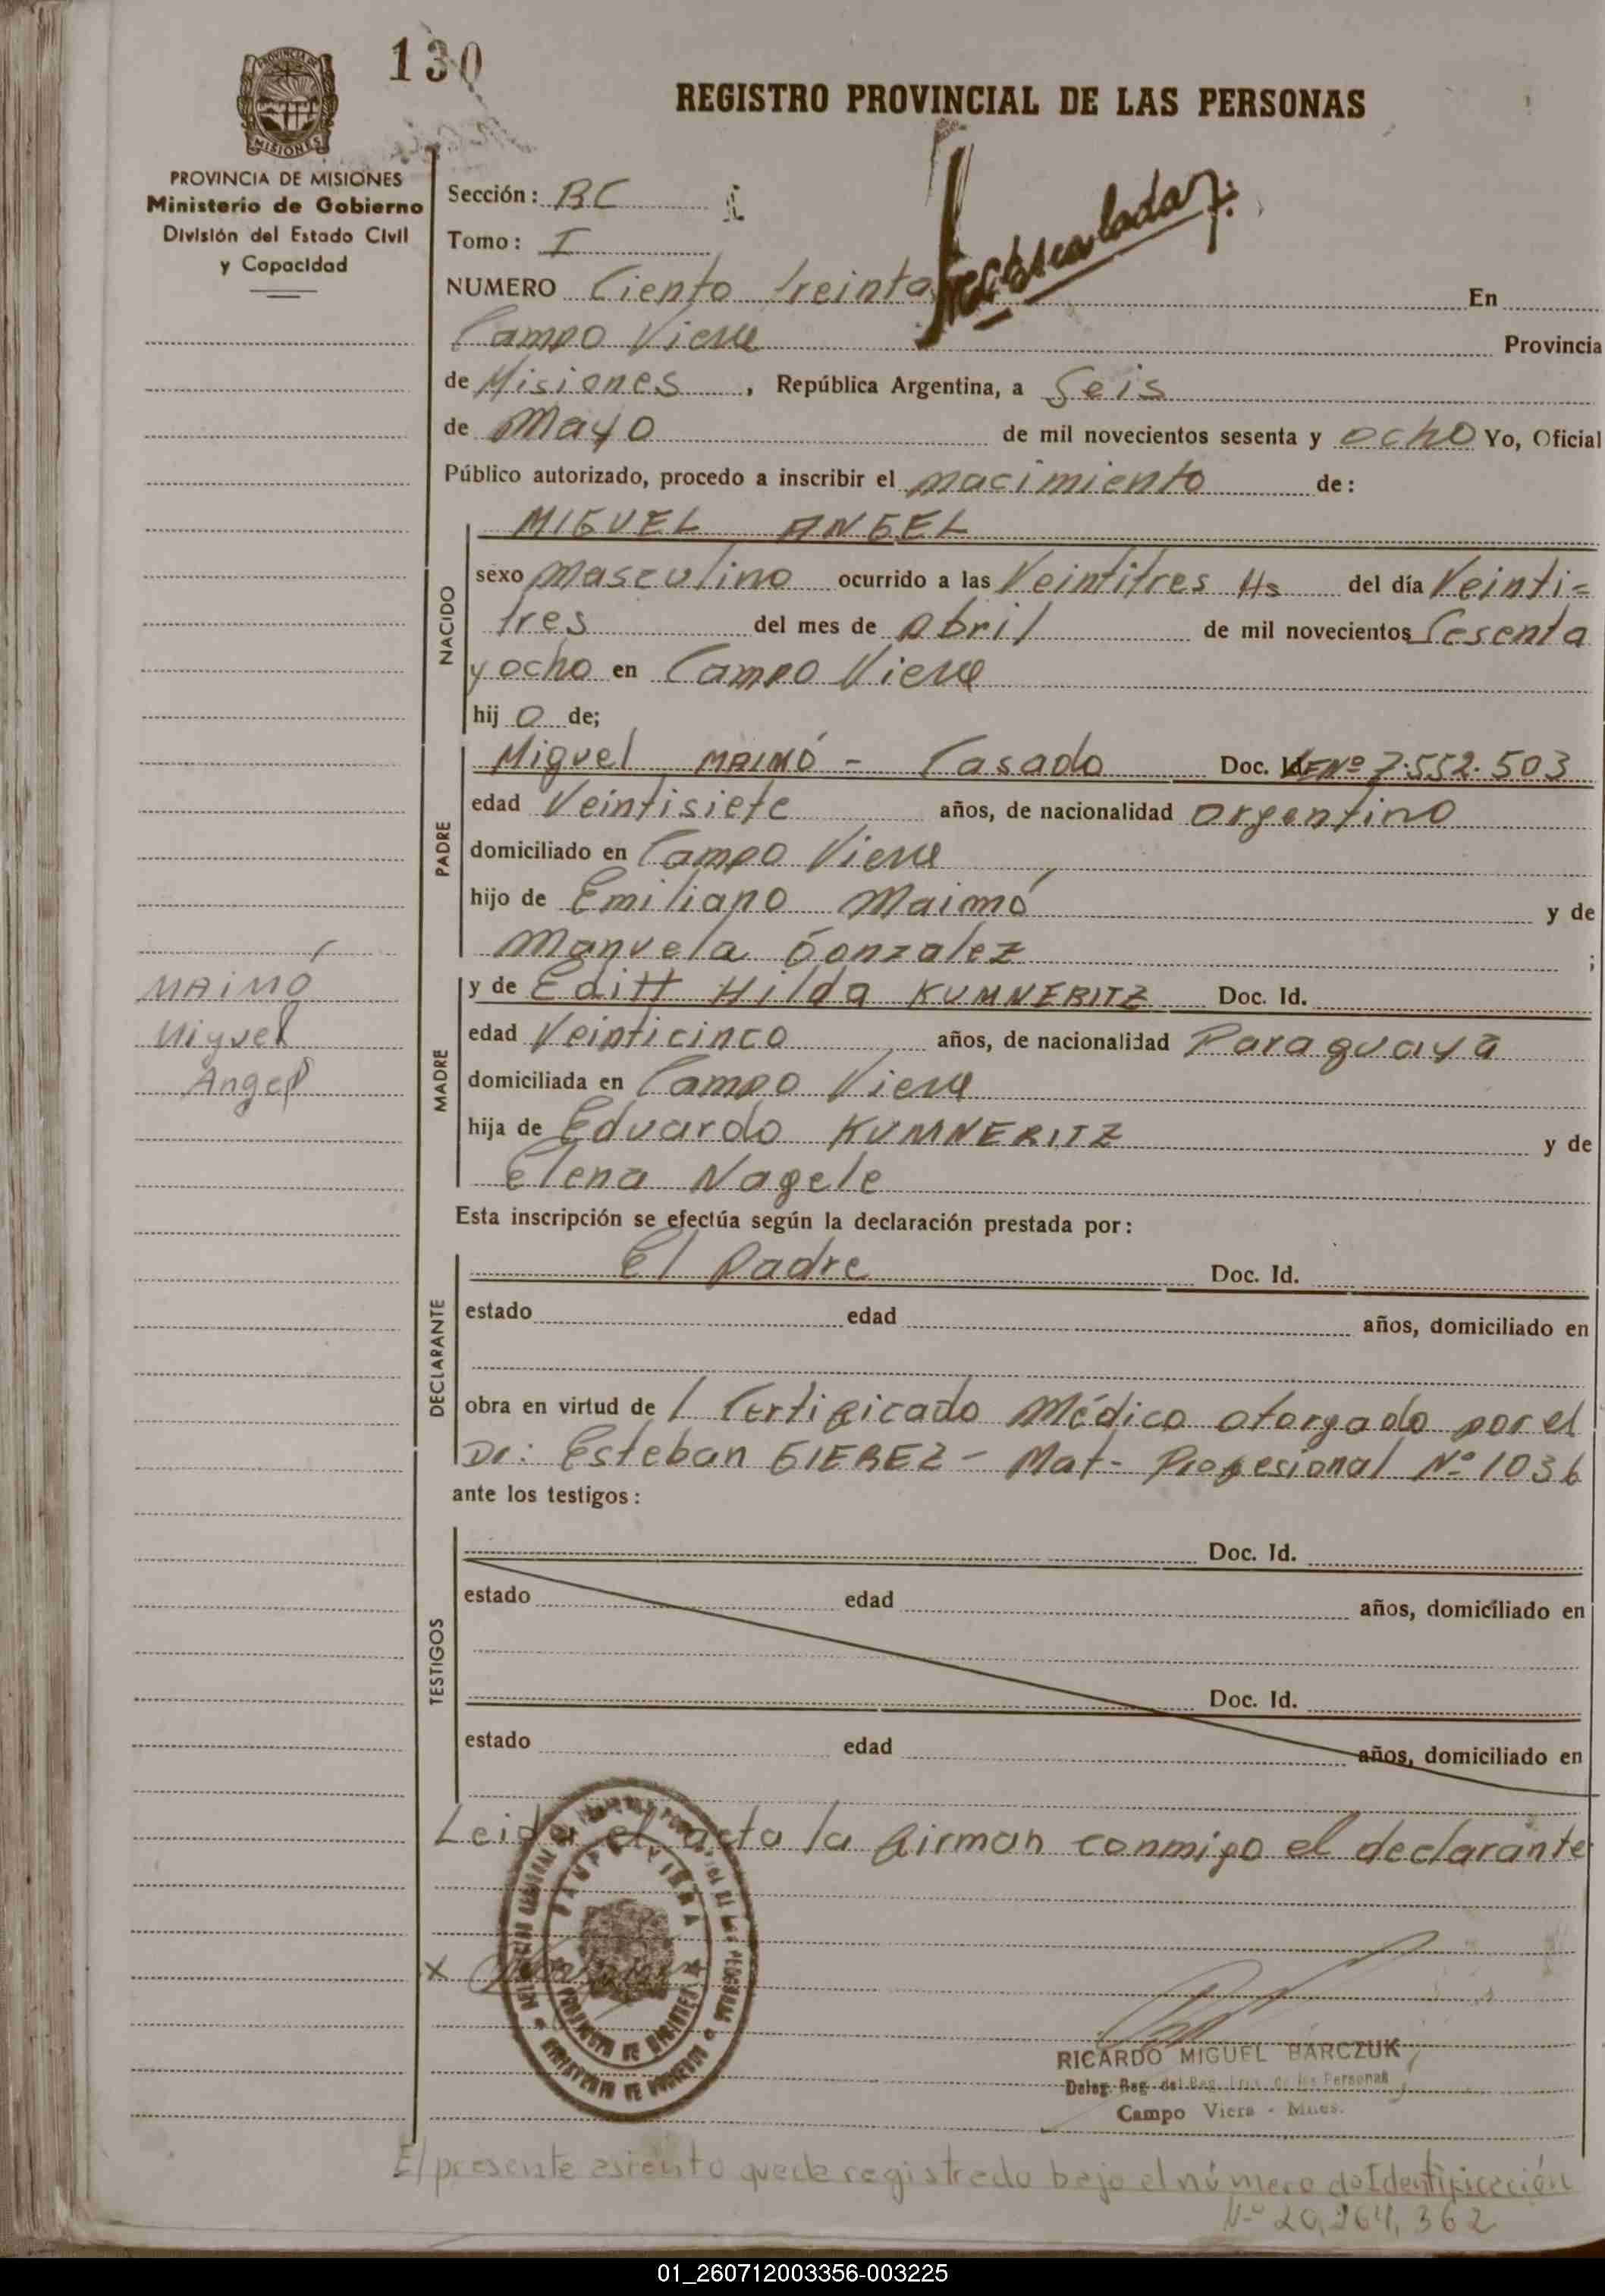 130
REGISTRO PROVINCIAL DE LAS PERSONAS
MISIONES
PROVINCIA DE MISIONES
Ministerio de Gobierno
División del Estado Civil
y Capacidad
Sección: BC
Tomo: I
NUMERO Ciento treinta En
Campo Viera Provincia
de Misiones, República Argentina, a Seis
de Mayo de mil novecientos sesenta y ocho Yo, Oficial
Público autorizado, procedo a inscribir el nacimiento de:
MIGUEL ANGEL
NACIDO
sexo Masculino ocurrido a las Veintitres Hs del día Veinti=
tres del mes de Abril de mil novecientos Sesenta
y ocho en Campo Viera
hij o de;
PADRE
Miguel MAIMÓ - Casado Doc. Id. Nº 7.552.503
edad Veintisiete años, de nacionalidad Argentino
domiciliado en Campo Viera
hijo de Emiliano Maimó y de
Manuela Gonzalez ;
MAIMÓ
Miguel
Angel
MADRE
y de Editt Hilda KUMNERITZ Doc. Id.
edad Veinticinco años, de nacionalidad Paraguaya
domiciliada en Campo Viera
hija de Eduardo KUMNERITZ y de
Elena Nagele
Esta inscripción se efectúa según la declaración prestada por:
DECLARANTE
El Padre Doc. Id.
estado edad años, domiciliado en
obra en virtud de 1 Certificado Médico otorgado por el
Dr: Esteban GIEREZ - Mat- Profesional Nº 1036
ante los testigos:
TESTIGOS
Doc. Id.
estado edad años, domiciliado en
Doc. Id.
estado edad años, domiciliado en
Leida el acta la firman conmigo el declarante
x
RICARDO MIGUEL BARCZUK
Deleg. Reg. del Reg. Prov. de las Personas
Campo Viera - Mnes.
El presente asiento queda registrado bajo el número de Identificación
Nº 20,264,362
01_260712003356-003225